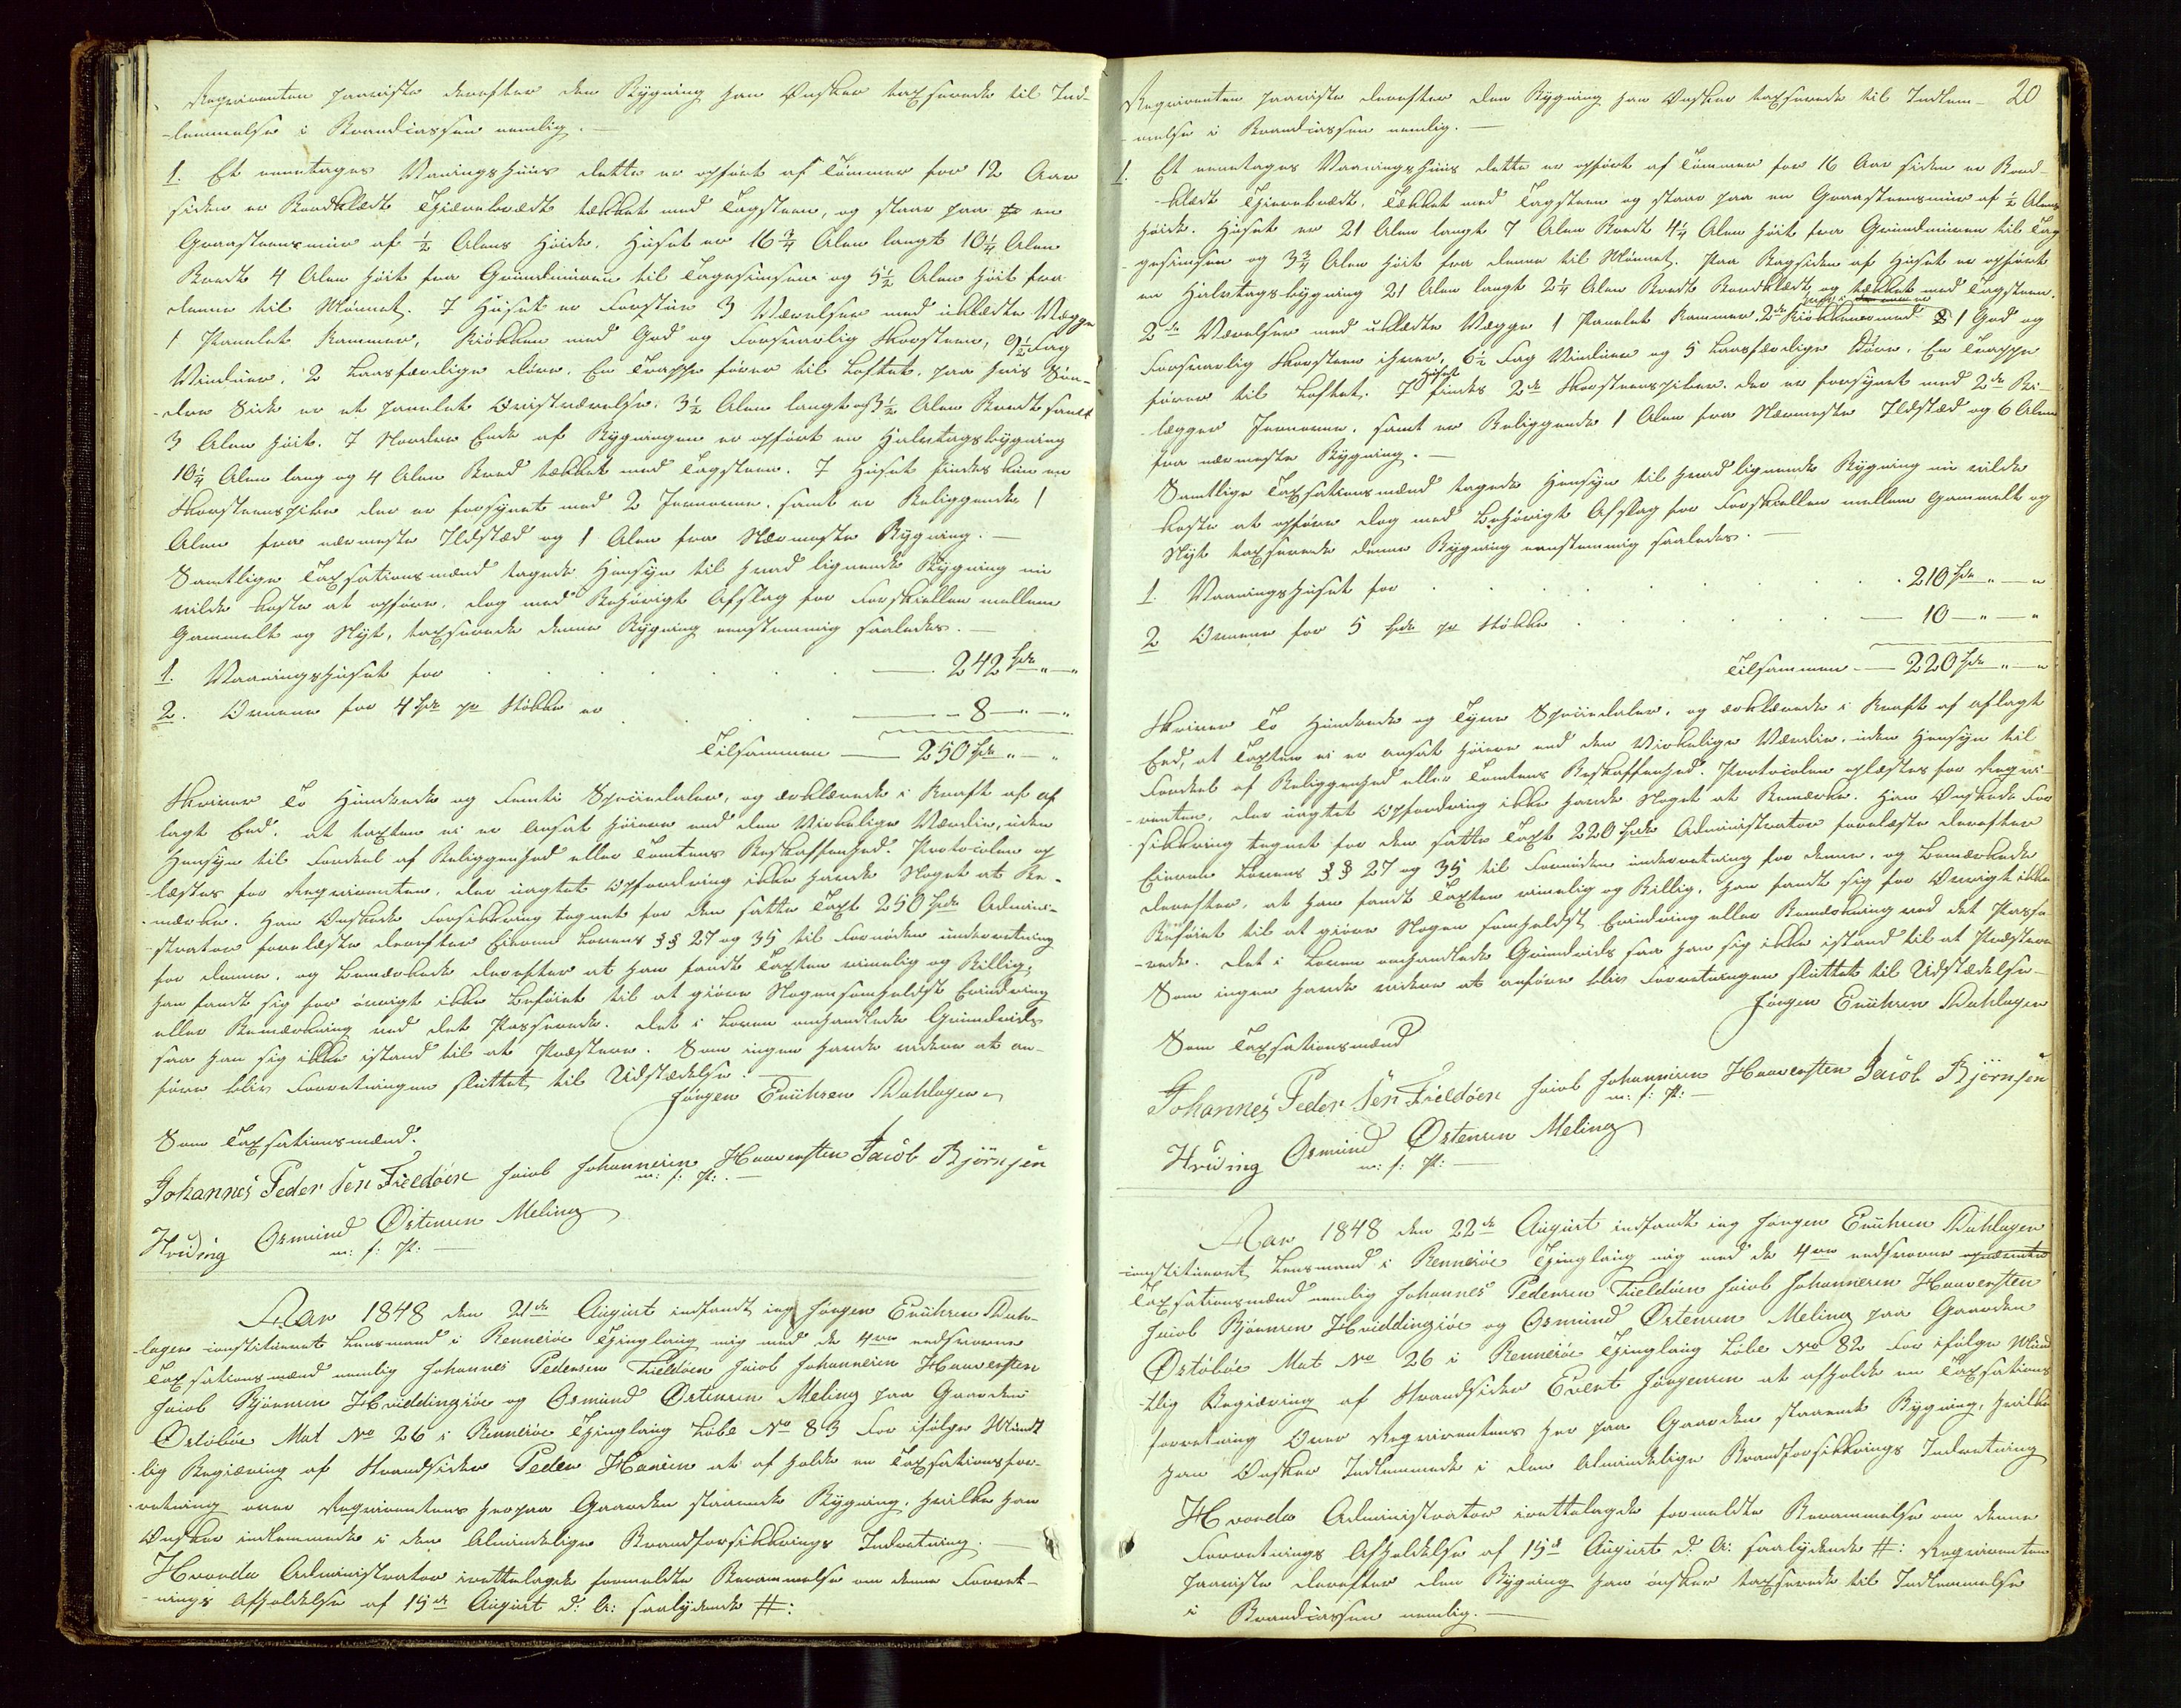 Reqvirenten paaviste derefter den Bygning han Ønsker taxserede til Ind-
-lemmelse i Brandcassen nemlig. —
1. Et eenetages Vaaningshuus dette er opført af Tømmer for 12 Aar
siden er Bordklædt Tjærebrædt tækket med Tagsteen, og staar paa en
Graasteensmuur af ½ Alens Høide. Huset er 16¾ Alen langt 10¼ Alen
Bredt 4 Alen høit fra Grundmuren til Tagesimsen og 5½ Alen høit fra
denne til Mønnet. I Huset er Forstue 3 Værelser med uklædte Vægge
1 Panelet Kammer, Kiøkken med God og Forsvarlig Skorsteen, 9½ Fag
Vinduer, 2 Laasfærdige döre. En Trappe fører til Loftet, paa hvis Søn-
-dre Side er et panelet Qvistværelse, 3½ Alen langt og 3½ Alen Bredt samt
3 Alen høit. I Nordre Ende af Bygningen er opført en Halvtagsbygning
10¼ Alen lang og 4 Alen Bred tækket med Tagsteen. I Huset findes kun en
Skorsteenspibe der er forsynet med 2 Jernovne, samt er Beliggende 1
Alen fra nærmeste Ildsted og 1 Alen fra Nærmeste Bygning. —
Samtlige Taxsationsmænd tagede Hensyn til hvad lignende Bygning nu
vilde koste at opføre, dog med Behørigt Afslag for Forskiellen mellem
Gammelt og Nyt, taxserede denne Bygning eenstemmig saaledes. —
1. Vaaningshuset for . . . . . — 242 Spd " — "
2. Ovnene for 4 Spd pr Stÿkke er . . . — 8 — " — "
Tilsammen — 250 Spd " — "
Skriver To Hundrede og Femti Speciedaler, og erklærede i Kraft af af
lagt Eed, at taxten ei er Ansat høiere end den Virkelige Værdie, uden
Hensyn til Fordeel af Beliggenhed eller Tomtens Beskaffenhed. Protocolen op
-læstes for Reqvirenten, der uagtet Opfordring ikke havde Noget at Be-
-mærke. Han Ønskede Forsikkring tegnet for den satte Taxt 250 Spd Admini-
-strator forelæste derefter Eieren Lovens §§ 27 og 35 til Fornøden underretning
for denne, og Bemærkede derefter at han fandt Taxten rimelig og Billig,
han fandt sig for øvrigt ikke Beføiet til at giøre Nogensomhelst Erindring
eller Bemærkning ved det Passerede. Det i Loven omhandlede Grundrids
saa han sig ikke istand til at Præstere. Som ingen havde videre at an-
-føre blev Forretningen sluttet til Udstædelse. —
Jørgen Eriichsen Dahlager
Som Taxsationsmænd.
Johannes Peder Sen Fieldöen Jacob Johannesen Haavesten Jacob Björnsen
m: f: P: —
Hviding Osmund Østensen Meling
m: f: P: —
Aar 1848 den 21de August indfandt ieg Jørgen Eriichsen Dah-
-lager constitueret Lensmand i Rennesöe Thinglaug mig med de 4re eedsvorne
Taxsationsmænd nemlig Johannes Pedersen Fieldøen Jacob Johannesen Haavesten
Jacob Bjørnsen Hviddingsöe og Osmund Østensen Meling paa Gaarden
Østöböe Mat No 26 i Rennesöe Thinglaug Löbe No 83 for ifølge Mündt
-lig Begiæring af Strandsider Peder Hansen at afholde en Taxsationsfor-
-retning over Reqvirentens her paa Gaarden staaende Bygning, hvilke han
Ønsker indlemmede i den Almindelige Brandforsikkrings Indretning. —
Hvorda Administrator irettelagde formeldte Berammelse om denne Forret-
-nings Afholdelse af 15de August d: A: saalydende #:
20
Reqvirenten paaviste derefter den Bygning han Ønsker taxserede til Indlem-
-melse i Brandcassen nemlig. —
1. Et eenetages Vaaningshuus dette er opført af Tømmer for 16 Aar siden er Bord-
-klædt Tjærebrædt, Tækket med Tagsteen og staar paa en Graasteensmuur af ½ Alens
Høide. Huset er 21 Alen langt 7 Alen Bredt 4¼ Alen høit fra Grundmuren til Tag
-gesimsen og 3¾ Alen høit fra denne til Mønnet. Paa Bagsiden af Huset er opført
en Halvtagsbygning 21 Alen langt 2¼ Alen Bredt Bordklædt og tækket med Tagsteen.
2de Værelser med uklædte Vægge 1 Panelet Kammer, 2de Kiökkener med 1 God og
Forsvarlig Skorsteen ihver, 6½ Fag Vinduer og 5 Laasfærdige Döre. En Trappe
fører til Loftet. I Huset findes 2de Skorsteenspiber, der er forsynet med 2de Bi-
-lægger Jernovne, samt er Beliggende 1 Alen fra Nærmeste Ildsted og 6 Alen
fra nærmeste Bygning. —
Samtlige Taxsationsmænd tagede Hensyn til hvad lignende Bygning nu vilde
koste at opføre dog med Behørigt Afslag for Forskiellen mellem Gammelt og
Nyt taxserede denne Bygning eenstemmig saaledes. —
1. Vaaningshuset for . . . . . 210 Spd " — "
2 Ovnene for 5 Spd pr Stÿkke . . . — 10 — " — "
Tilsammen — 220 Spd " — "
Skriver To Hundrede og Tyve Speciedaler, og erklærede i Kraft af aflagt
Eed, at Taxten ei er ansat høiere end den Virkelige Værdie, uden Hensyn til
Fordeel af Beliggenhed eller Tomtens Beskaffenhed. Protocolen oplæstes for Reqvi-
-renten, der uagtet Opfordring ikke havde Noget at Bemærke. Han Ønskede For
-sikkring tegnet for den satte Taxt 220 Spd Administrator forelæste derefter
Eieren Lovens §§ 27 og 35 til Fornöden underretning for denne, og Bemærkede
derefter, at han fandt Taxten rimelig og Billig, han fandt sig for Øvrigt ikke
Beføiet til at giøre Nogen somhelst Erindring eller Bemærkning ved det Passe-
-rede. Det i Loven omhandlede Grundrids saa han sig ikke istand til at Præstere
Som ingen havde videre at anføre blev Forretningen sluttet til Udstædelse.
Jørgen Eriichsen Dahlager
Som Taxsationsmænd
Johannes Peder Sen Fieldöen Jacob Johannesen Haavesten Jacob Björnsen
m: f: P: —
Hviding Osmund Østensen Meling
m: f: P: —
Aar 1848 den 22de August indfandt ieg Jørgen Eriichsen Dahlager
constitueret Lensmand i Rennesöe Thinglaug mig med de 4re eedsvorne opnævnte
Taxsationsmænd nemlig Johannes Pedersen Fieldøen Jacob Johannesen Haavesten
Jacob Bjørnsen Hviddingsöe og Osmund Østensen Meling paa Gaarden
Østöböe Mat No 26 i Rennesöe Thinglaug Löbe No 82 for ifølge Münd
-tlig Begiæring af Strandsider Evert Jørgensen at afholde en Taxsations
forretning Over Reqvirentens her paa Gaarden staaende Bygning, hvilke
han Ønsker Indlemmede i den Almindelige Brandforsikkrings Indretning
Hvorda Administrator irettelagde formeldte Berammelse om denne
Forretnings Afholdelse af 15de August d: A: saalydende #: Reqvirenten
paaviste derefter den Bygning han ønsker taxserede til Indlemmelse
i Brandcassen nemlig. —